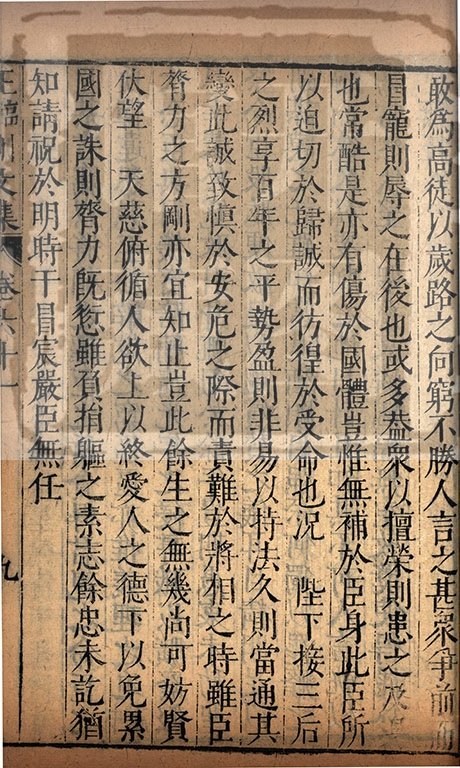 敢為高徒以歲路之向窮不勝人言之甚衆爭前而
冒寵則辱之在後也或多葢衆以擅榮則患之及
也常酷是亦有傷於國體豈惟無補於臣身此臣所
以迫切於歸誠而彷徨於受命也況　陛下接三后
之烈享百年之平勢盈則非易以持法久則當通其
變此誠致愼於安危之際而責難於將相之時雖臣
膂力之方剛亦宜知止豈此餘生之無幾尚可妨賢
伏望　天慈俯循人欲上以終愛人之德下以免累
國之誅則膂力旣愆雖負捐軀之素志餘忠未訖猶
知請祝於明時干冒宸嚴臣無任
王臨川文集　卷六十一　九